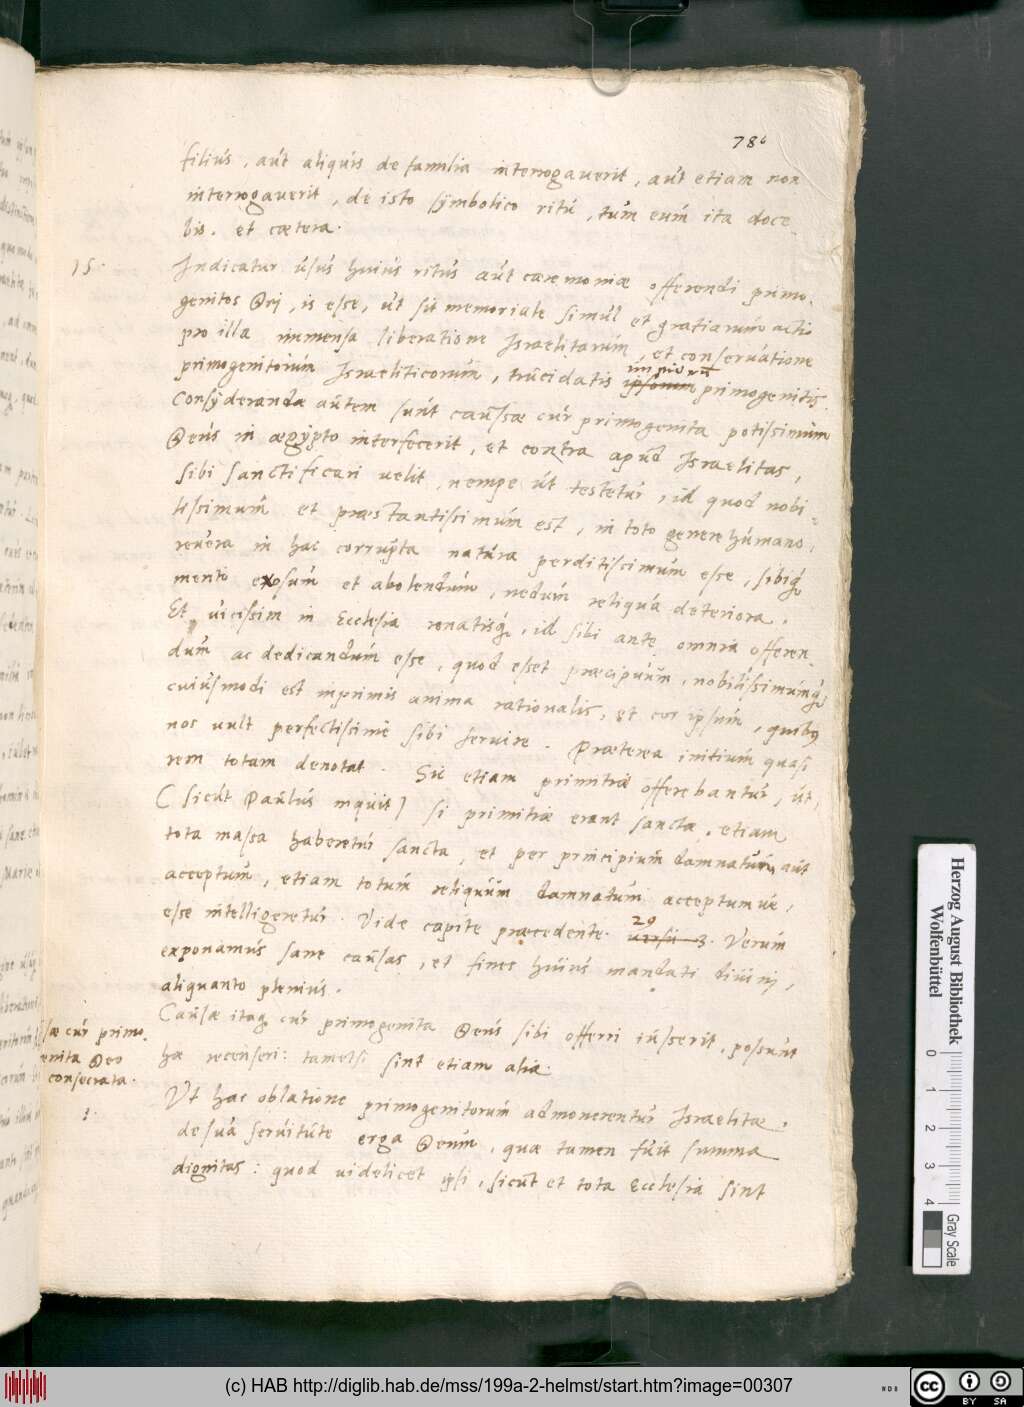 786
filius, aut aliquis de familia interrogaverit, aut etiam non
interrogaverit, de isto symbolico ritu, tum eum ita doce
bis. et cætera.
15.
Indicatur usus huius ritus aut cæremoniæ offerendi primo,
genitos Deo, is esse, ut sit memoriale simul et gratiarum actio
pro illa immensa liberatione Israelitarum, et conservatione
primogenitorum Israeliticorum, trucidatis impiorum primogenitis.
Consyderandæ autem sunt causæ cur primogenita potissimum
Deus in ægypto interfecerit, et contra apud Israelitas,
sibi sanctificari velit, nempe ut testetur, id quod nobi-
lissimum et præstantissimum est, in toto genere humano,
revera in hac corrupta natura perditissimum esse, sibiq3
merito exosum et abolendum, nedum reliqua deteriora.
Et vicissim in Ecclesia renatisq3, id sibi ante omnia offeren-
dum ac dedicandum esse, quod esset præcipuum, nobilissimumq3,
cuiusmodi est inprimis anima rationalis, et cor ipsum, quibus
nos vult perfectissime sibi servire. Præterea initium quasi
rem totam denotat. Sic etiam primitiæ offerebantur, ut,
(sicut Paulus inquit) si primitiæ erant sancta, etiam
tota massa haberetur sancta, et per principium damnatum, aut
acceptum, etiam totum reliquum damnatum acceptumve,
esse intelligeretur. Vide capite præcedente. 20 versu 3. Verum
exponamus sane causas, et fines huius mandati divini,
aliquanto plenius.
Causæ itaq3 cur primogenita Deus sibi offerri iusserit, possunt
hæ recenseri: tametsi sint etiam aliæ.
sæ cur primo,
enita Deo
consecrata.
1.
Ut hac oblatione primogenitorum admonerentur Israelitæ,
de sua servitute erga Deum, quæ tamen fuit summa
dignitas: quod videlicet ipsi, sicut et tota Ecclesia sint
Herzog August Bibliothek
Wolfenbüttel
0 1 2 3 4
Gray Scale
(c) HAB http://diglib.hab.de/mss/199a-2-helmst/start.htm?image=00307
cc BY SA